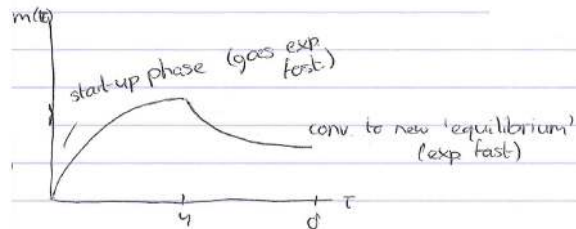 m(t)
start-up phase (goes exp
fast)
conv. to new 'equilibrium'
(exp fast)
4
τ